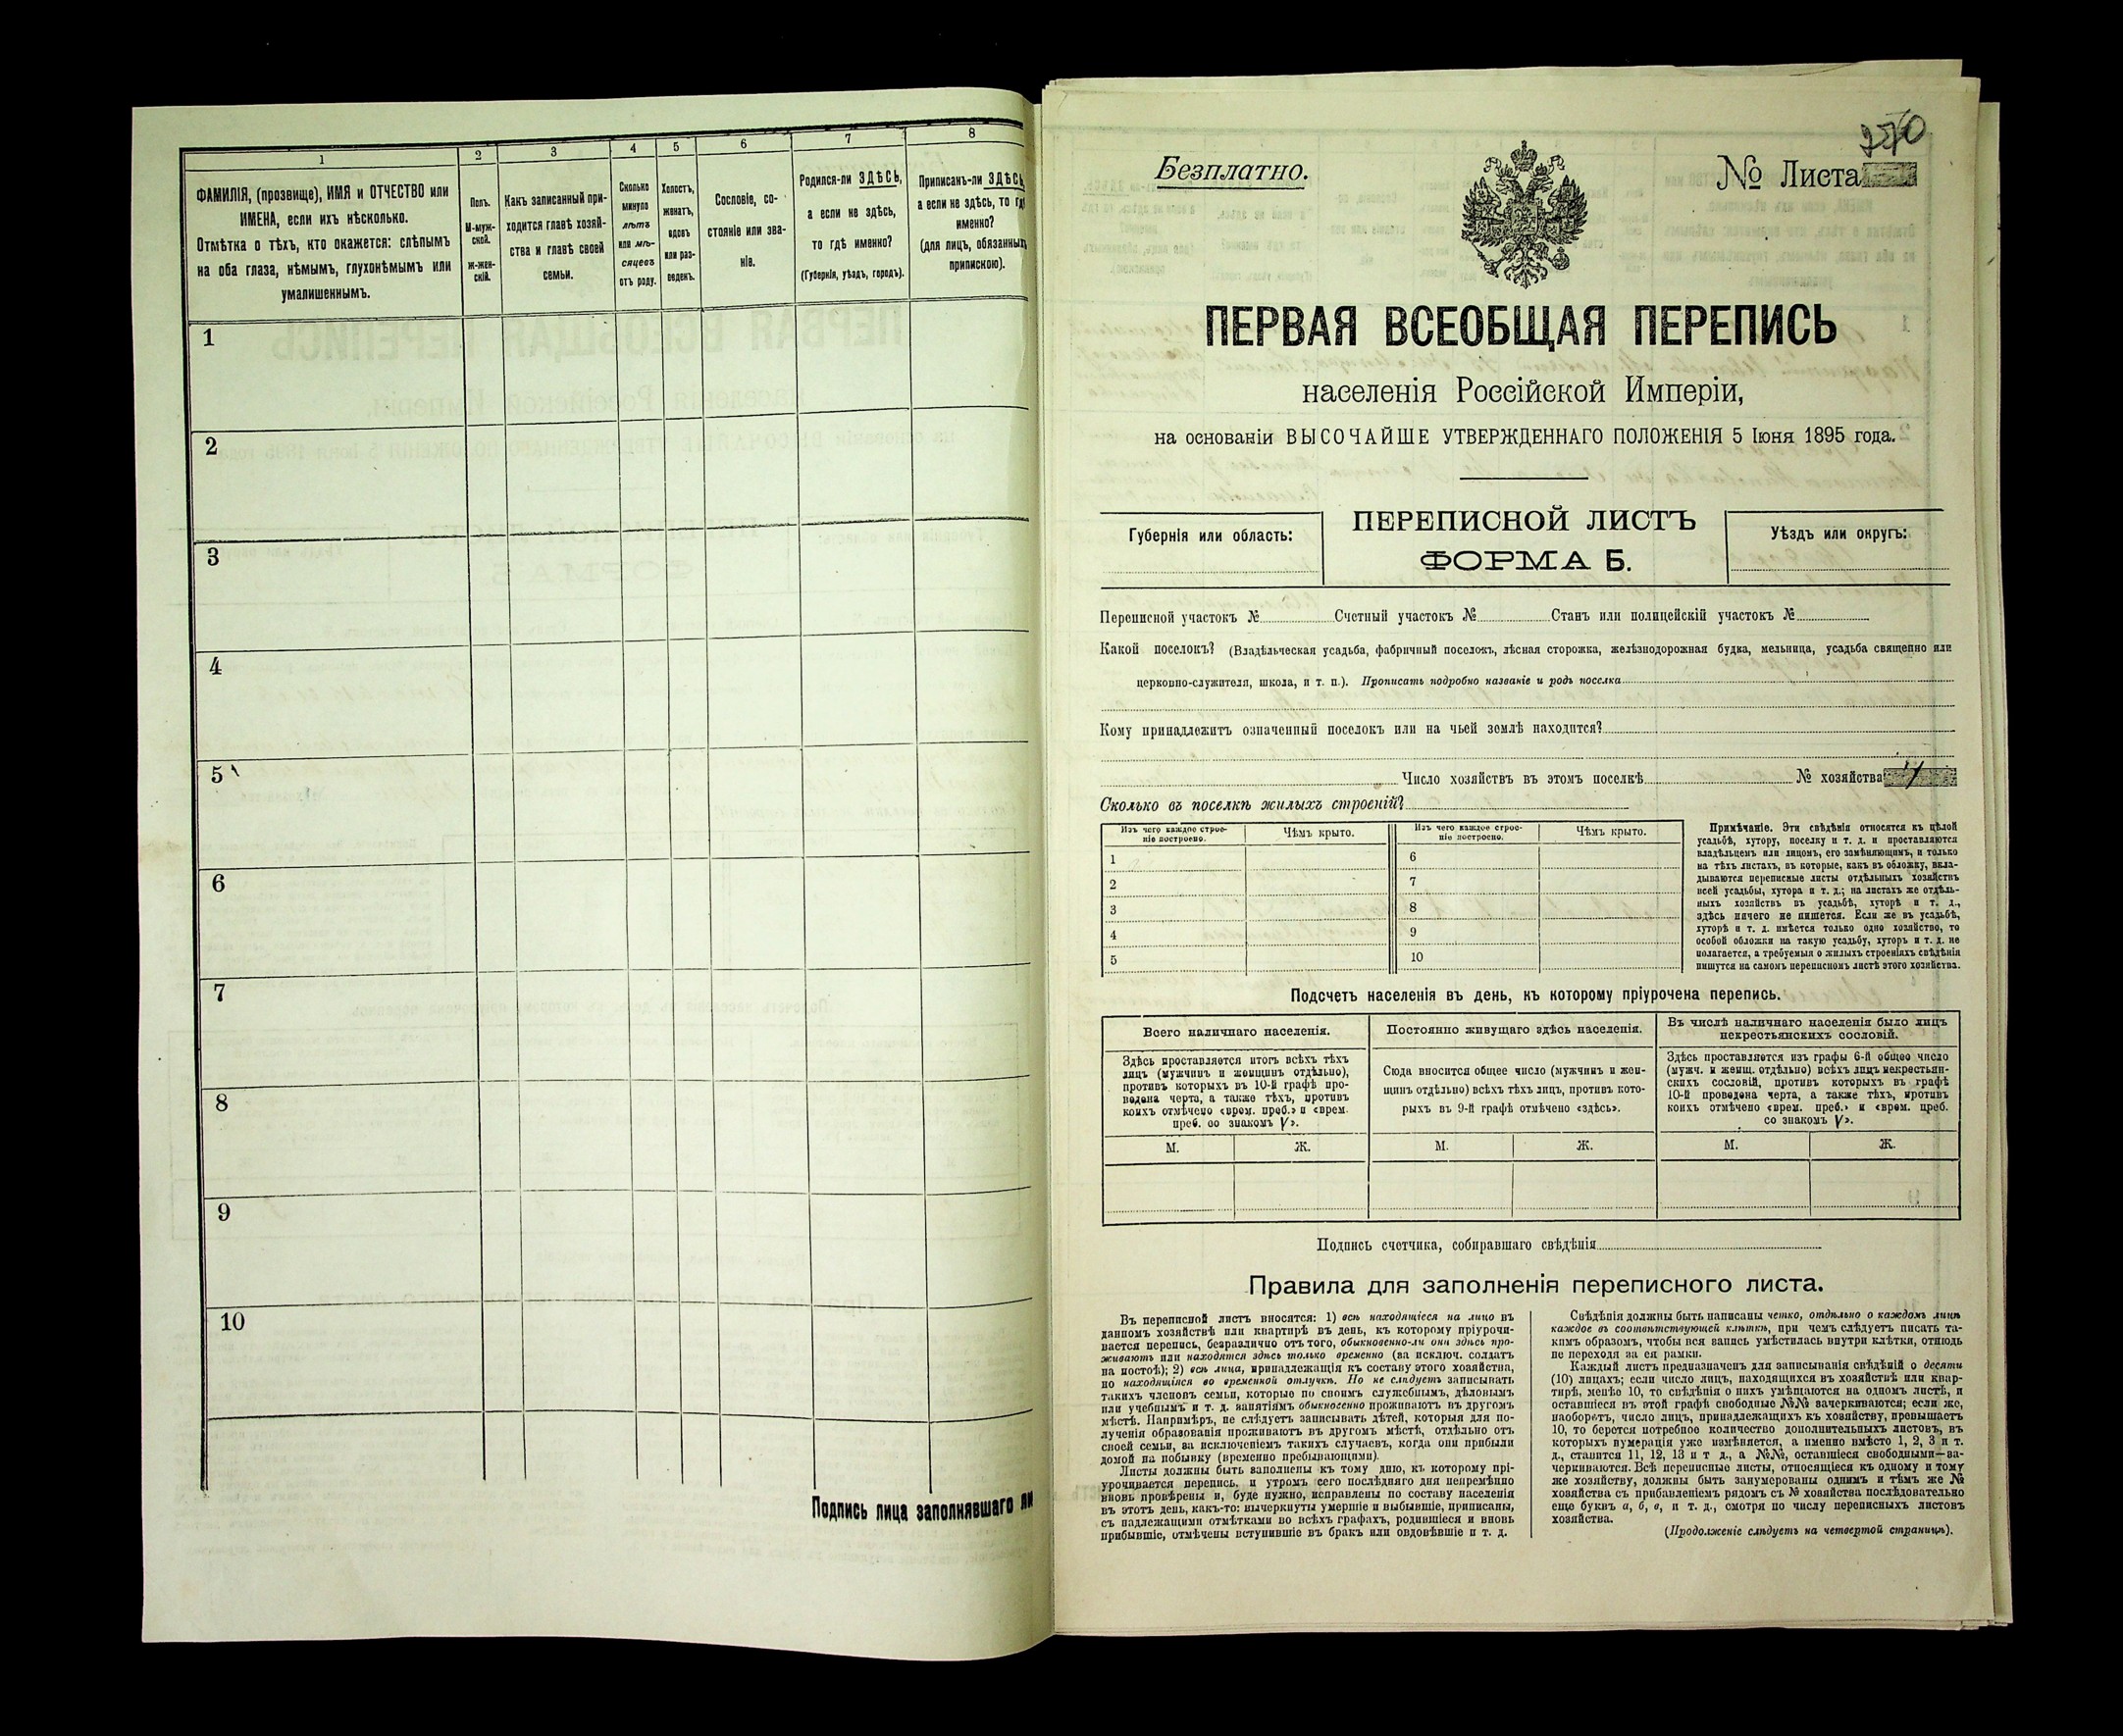 1
2
3
4
5
6
7
8
ФАМИЛІЯ, (прозвище), ИМЯ и ОТЧЕСТВО или
ИМЕНА, если ихъ нѣсколько.
Отмѣтка о тѣхъ, кто окажется: слѣпымъ
на оба глаза, нѣмымъ, глухонѣмымъ или
умалишеннымъ.
Полъ.
М-муж-
ской.
ж-жен-
скій.
Какъ записанный при-
ходится главѣ хозяй-
ства и главѣ своей
семьи.
Сколько
минуло
лѣтъ
или мѣ-
сяцевъ
отъ роду.
Холостъ,
женатъ,
вдовъ
или раз-
веденъ.
Сословіе, со-
стояніе или зва-
ніе.
Родился-ли ЗДѢСЬ,
а если не здѣсь,
то гдѣ именно?
(Губернія, уѣздъ, городъ).
Приписанъ-ли ЗДѢСЬ,
а если не здѣсь, то гдѣ
именно?
(для лицъ, обязанныхъ
припискою).
1
2
3
4
5
6
7
8
9
10
Подпись лица заполнявшаго
270
Безплатно.
№ Листа
ПЕРВАЯ ВСЕОБЩАЯ ПЕРЕПИСЬ
населенія Россійской Имперіи,
на основаніи ВЫСОЧАЙШЕ УТВЕРЖДЕННАГО ПОЛОЖЕНІЯ 5 Іюня 1895 года.
Губернія или область:
ПЕРЕПИСНОЙ ЛИСТЪ
ФОРМА Б.
Уѣздъ или округъ:
Переписной участокъ № Счетный участокъ № Станъ или полицейскій участокъ №
Какой поселокъ? (Владѣльческая усадьба, фабричный поселокъ, лѣсная сторожка, желѣзнодорожная будка, мельница, усадьба священно или
церковно-служителя, школа, и т. п.). Прописать подробно названіе и родъ поселка
Кому принадлежитъ означенный поселокъ или на чьей землѣ находится?
Число хозяйствъ въ этомъ поселкѣ № хозяйства
Сколько въ поселкѣ жилыхъ строеній?
Изъ чего каждое строе-
ніе построено.
Чѣмъ крыто.
Изъ чего каждое строе-
ніе построено.
Чѣмъ крыто.
1
2
3
4
5
6
7
8
9
10
Примѣчаніе. Эти свѣдѣнія относятся къ цѣлой
усадьбѣ, хутору, поселку и т. д. и проставляются
владѣльцемъ или лицомъ, его замѣняющимъ, и только
на тѣхъ листахъ, въ которые, какъ въ обложку, вкла-
дываются переписные листы отдѣльныхъ хозяйствъ
всей усадьбы, хутора и т. д.; на листахъ же отдѣль-
ныхъ хозяйствъ въ усадьбѣ, хуторѣ и т. д.,
здѣсь ничего не пишется. Если же въ усадьбѣ,
хуторѣ и т. д. имѣется только одно хозяйство, то
особой обложки на такую усадьбу, хуторъ и т. д. не
полагается, а требуемыя о жилыхъ строеніяхъ свѣдѣнія
пишутся на самомъ переписномъ листѣ этого хозяйства.
Подсчетъ населенія въ день, къ которому пріурочена перепись.
Всего наличнаго населенія.
Здѣсь проставляется итогъ всѣхъ тѣхъ
лицъ (мужчинъ и женщинъ отдѣльно),
противъ которыхъ въ 10-й графѣ про-
ведена черта, а также тѣхъ, противъ
коихъ отмѣчено «врем. преб.» и «врем.
преб. со знакомъ V».
М.
Ж.
Постоянно живущаго здѣсь населенія.
Сюда вносится общее число (мужчинъ и жен-
щинъ отдѣльно) всѣхъ тѣхъ лицъ, противъ кото-
рыхъ въ 9-й графѣ отмѣчено «здѣсь».
М.
Ж.
Въ числѣ наличнаго населенія было лицъ
некрестьянскихъ сословій.
Здѣсь проставляется изъ графы 6-й общее число
(мужч. и женщ. отдѣльно) всѣхъ лицъ некрестьян-
скихъ сословій, противъ которыхъ въ графѣ
10-й проведена черта, а также тѣхъ, противъ
коихъ отмѣчено «врем. преб.» и «врем. преб.
со знакомъ V».
М.
Ж.
Подпись счетчика, собиравшаго свѣдѣнія
Правила для заполненія переписного листа.
Въ переписной листъ вносятся: 1) всѣ находящіеся на лицо въ
данномъ хозяйствѣ или квартирѣ въ день, къ которому пріурочи-
вается перепись, безразлично отъ того, обыкновенно-ли они здѣсь про-
живаютъ или находятся здѣсь только временно (за исключ. солдатъ
на постоѣ); 2) всѣ лица, принадлежащія къ составу этого хозяйства,
но находящіяся во временной отлучкѣ. Но не слѣдуетъ записывать
такихъ членовъ семьи, которые по своимъ служебнымъ, дѣловымъ
или учебнымъ и т. д. занятіямъ обыкновенно проживаютъ въ другомъ
мѣстѣ. Напримѣръ, не слѣдуетъ записывать дѣтей, которыя для по-
лученія образованія проживаютъ въ другомъ мѣстѣ, отдѣльно отъ
своей семьи, за исключеніемъ такихъ случаевъ, когда они прибыли
домой на побывку (временно пребывающими).
Листы должны быть заполнены къ тому дню, къ которому прі-
урочивается перепись, и утромъ сего послѣдняго дня непремѣнно
вновь провѣрены и, буде нужно, исправлены по составу населенія
въ этотъ день, какъ-то: вычеркнуты умершіе и выбывшіе, приписаны,
съ надлежащими отмѣтками во всѣхъ графахъ, родившіеся и вновь
прибывшіе, отмѣчены вступившіе въ бракъ или овдовѣвшіе и т. д.
Свѣдѣнія должны быть написаны четко, отдѣльно о каждомъ лицѣ
каждое въ соотвѣтствующей клѣткѣ, при чемъ слѣдуетъ писать та-
кимъ образомъ, чтобы вся запись умѣстилась внутри клѣтки, отнюдь
не переходя за ея рамки.
Каждый листъ предназначенъ для записыванія свѣдѣній о десяти
(10) лицахъ; если число лицъ, находящихся въ хозяйствѣ или квар-
тирѣ, менѣе 10, то свѣдѣнія о нихъ умѣщаются на одномъ листѣ, и
оставшіеся въ этой графѣ свободные №№ зачеркиваются; если же,
наоборотъ, число лицъ, принадлежащихъ къ хозяйству, превышаетъ
10, то берется потребное количество дополнительныхъ листовъ, въ
которыхъ нумерація уже измѣняется, а именно вмѣсто 1, 2, 3 и т.
д., ставится 11, 12, 13 и т д., а №№, оставшіеся свободными—за-
черкиваются. Всѣ переписные листы, относящіеся къ одному и тому
же хозяйству, должны быть занумерованы однимъ и тѣмъ же №
хозяйства съ прибавленіемъ рядомъ съ № хозяйства послѣдовательно
еще буквъ а, б, в, и т. д., смотря по числу переписныхъ листовъ
хозяйства.
(Продолженіе слѣдуетъ на четвертой страницѣ).